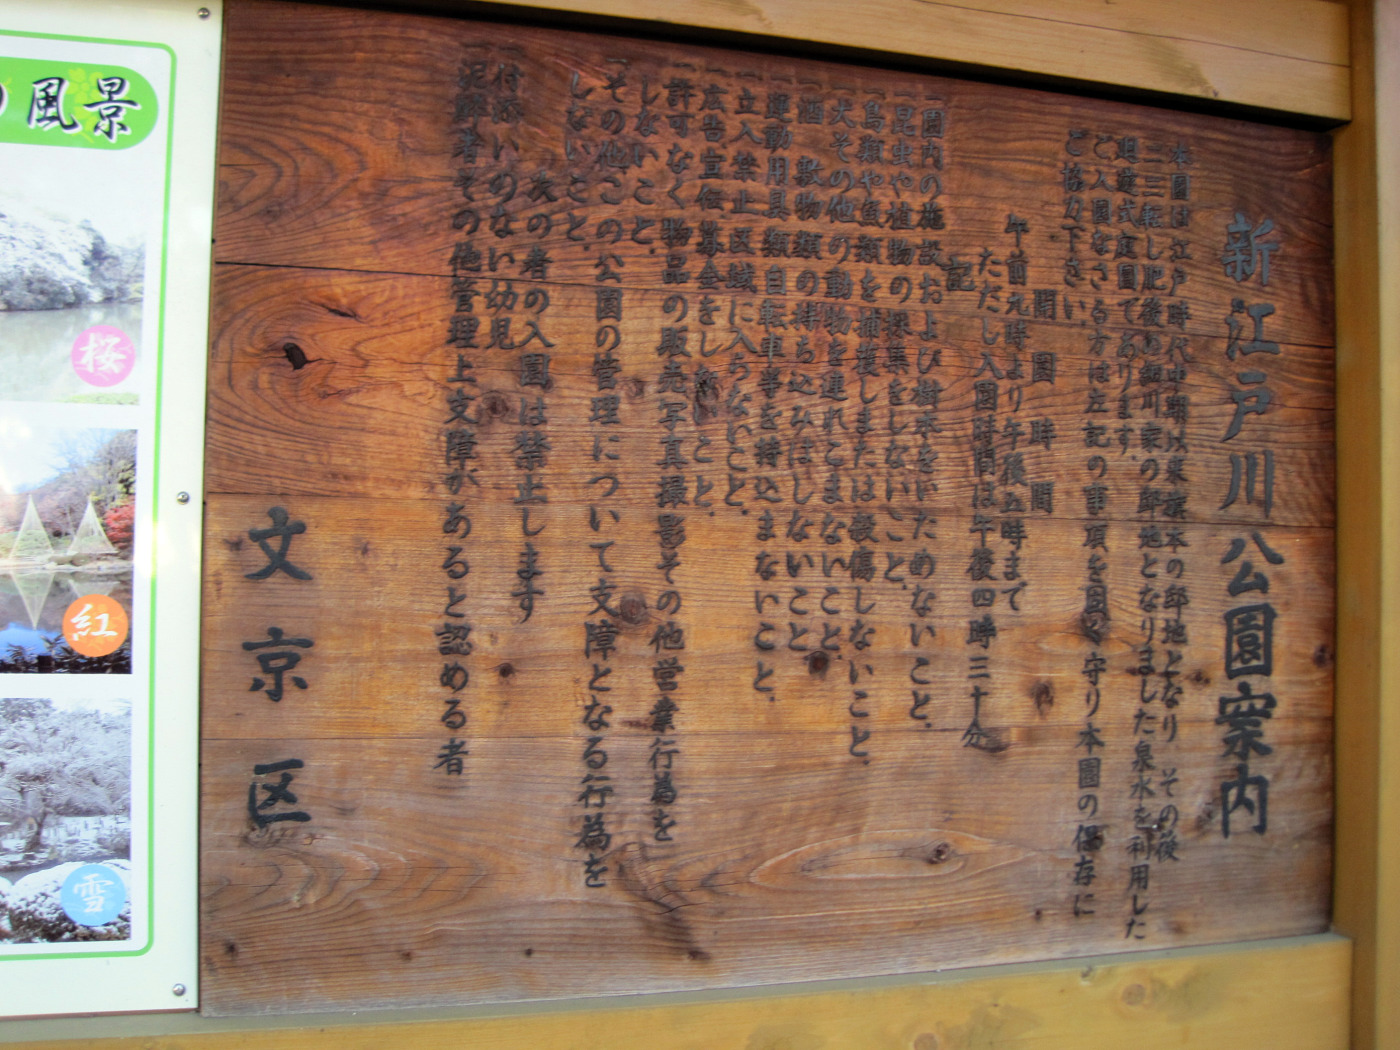 新江戸川公園案内
本園は江戸時代中期以来旗本の邸地となり その後
二三転し肥後の細川家の邸地となりました泉水を利用した
廻遊式庭園であります
ご入園なさる方は左記の事項を固く守り本園の保存に
ご協力下さい.
開園時間
午前九時より午後五時まで
ただし入園時間は午後四時三十分
記
一園内の施設および樹木をいためないこと.
一昆虫や植物の採集をしないこと.
一鳥類や魚類を捕獲しまたは殺傷しないこと.
一犬その他の動物を連れこまないこと.
一酒 敷物類の持ち込みはしないこと
一運動用具類自転車等を持込まないこと.
一立入禁止区域に入らないこと.
一広告宣伝募金をしないこと.
一許可なく物品の販売写真撮影その他営業行為を
しないこと.
一その他この公園の管理について支障となる行為を
しないこと.
次の者の入園は禁止します
一付添いのない幼児
一泥酔者その他管理上支障があると認める者
文京区
風景
桜
紅
雪